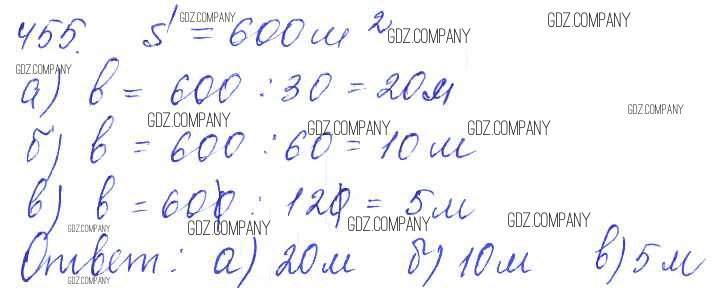 455. S = 600 м²
а) в = 600 : 30 = 20 м
б) в = 600 : 60 = 10 м
в) в = 600 : 120 = 5 м
Ответ: а) 20 м б) 10 м в) 5 м
GDZ.COMPANY
GDZ.COMPANY
GDZ.COMPANY
GDZ.COMPANY
GDZ.COMPANY
GDZ.COMPANY
GDZ.COMPANY
GDZ.COMPANY
GDZ.COMPANY
GDZ.COMPANY
GDZ.COMPANY
GDZ.COMPANY
GDZ.COMPANY